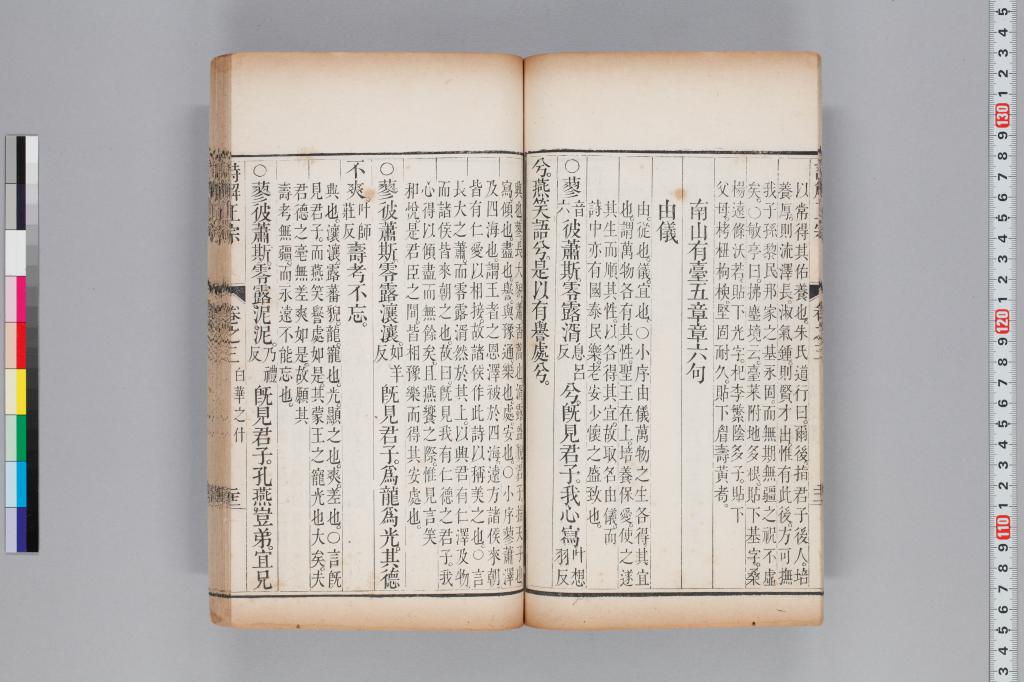 以常得其佑養也。朱氏道行曰。爾後指君子後人。培
養厚。則流澤長。淑氣鍾。則賢才出。惟有此後。方可撫
我于孫黎民。邦家之基永固。而無期無疆之祝不虛
矣。〇敏亭曰。拂塵境云。臺萊附地多根。貼下基字。桑
楊遠條沃若。貼下光字。杞李繁陰多子。貼下
父母。栲杻枸楰堅固耐久。貼下眉壽黃耇。
南山有臺五章章六句
由儀
由。從也。儀。宜也。〇小序。由儀萬物之生各得其宜
也。謂萬物各有其性。聖王在上。培養保愛。使之遂
其生而順其性。以各得其宜。故取名由儀。而
詩中亦有國泰民樂老安少懷之盛致也。
〇蓼音六彼蕭斯零露湑息呂反兮。旣見君子。我心寫叶想羽反
兮。燕笑語兮。是以有譽處兮。
寫。傾也。盡也。譽。與豫通。樂也。處。安也。〇小序。蓼蕭澤
及四海也。謂王者之恩澤被於四海。遠方諸侯來朝
皆有仁愛以相接。故諸侯作此詩以稱美之也。〇言
長大之蕭。而零露湑然於其上。以興君有仁澤及物
而諸侯皆來朝之也。故曰。旣見我有仁德之君子。我
心得以傾盡而無餘矣。且燕饗之際。惟見言笑
和悅。是君臣之間。皆相豫樂而得其安處也。
〇蓼彼蕭斯零露瀼瀼如羊反旣見君子。爲龍爲光。其德
不爽叶師莊反壽考不忘。
興也。瀼瀼。露蕃貌。龍。寵也。光。顯之也。爽。差也。〇言旣
見君子。而燕笑譽處如是。其蒙王之寵光也大矣。夫
君德之亳無差爽如是。故願其
壽考無疆。而永遠不能忘也。
〇蓼彼蕭斯零露泥泥乃禮反旣見君子。孔燕豈弟。宜兄
詩解正宗 卷之三 白華之什